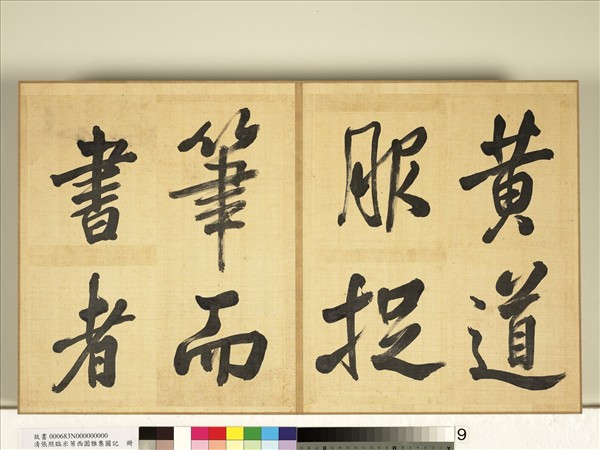 黃道
服捉
筆而
書者
故書 000683N000000000
清張照臨米芾西園雅集圖記 冊
9